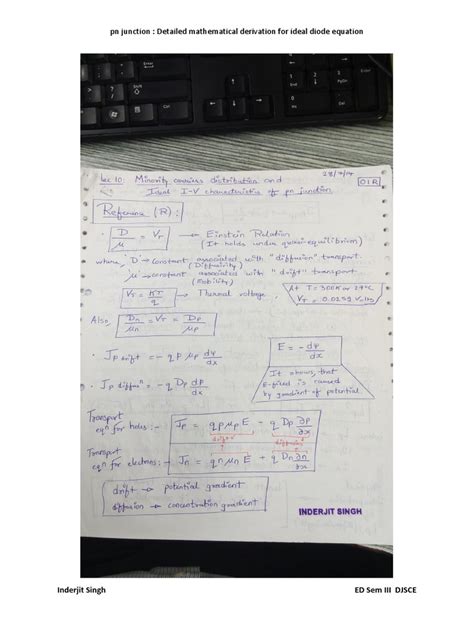 pn junction : Detailed mathematical derivation for ideal diode equation
28/7/14
Lec 10: Minority carriers distribution and
Ideal I-V characteristics of pn junction
01R
Reference (R) :
D/μ = VT → Einstein Relation
(It holds under quasi-equilibrium)
where, 'D' → constant associated with "diffusion" transport.
(Diffusivity)
'μ' → constant associated with "drift" transport.
(Mobility)
VT = KT/q → Thermal voltage.
At T = 300K or 27°C
VT = 0.0259 Volts
Also, Dn/μn = VT = Dp/μp
E = - dψ/dx
It shows, that
E-field is caused
by gradient of potential
• Jp drift = - q p μp dψ/dx
• Jp diffusⁿ = - q Dp dp/dx
Transport
eqⁿ for holes :- Jp = q p μp E - q Dp ∂p/∂x
drift diffusion
Transport
eqⁿ for electrons :- Jn = q n μn E + q Dn ∂n/∂x
drift → potential gradient
diffusion → concentration gradient
INDERJIT SINGH
Inderjit Singh ED Sem III DJSCE